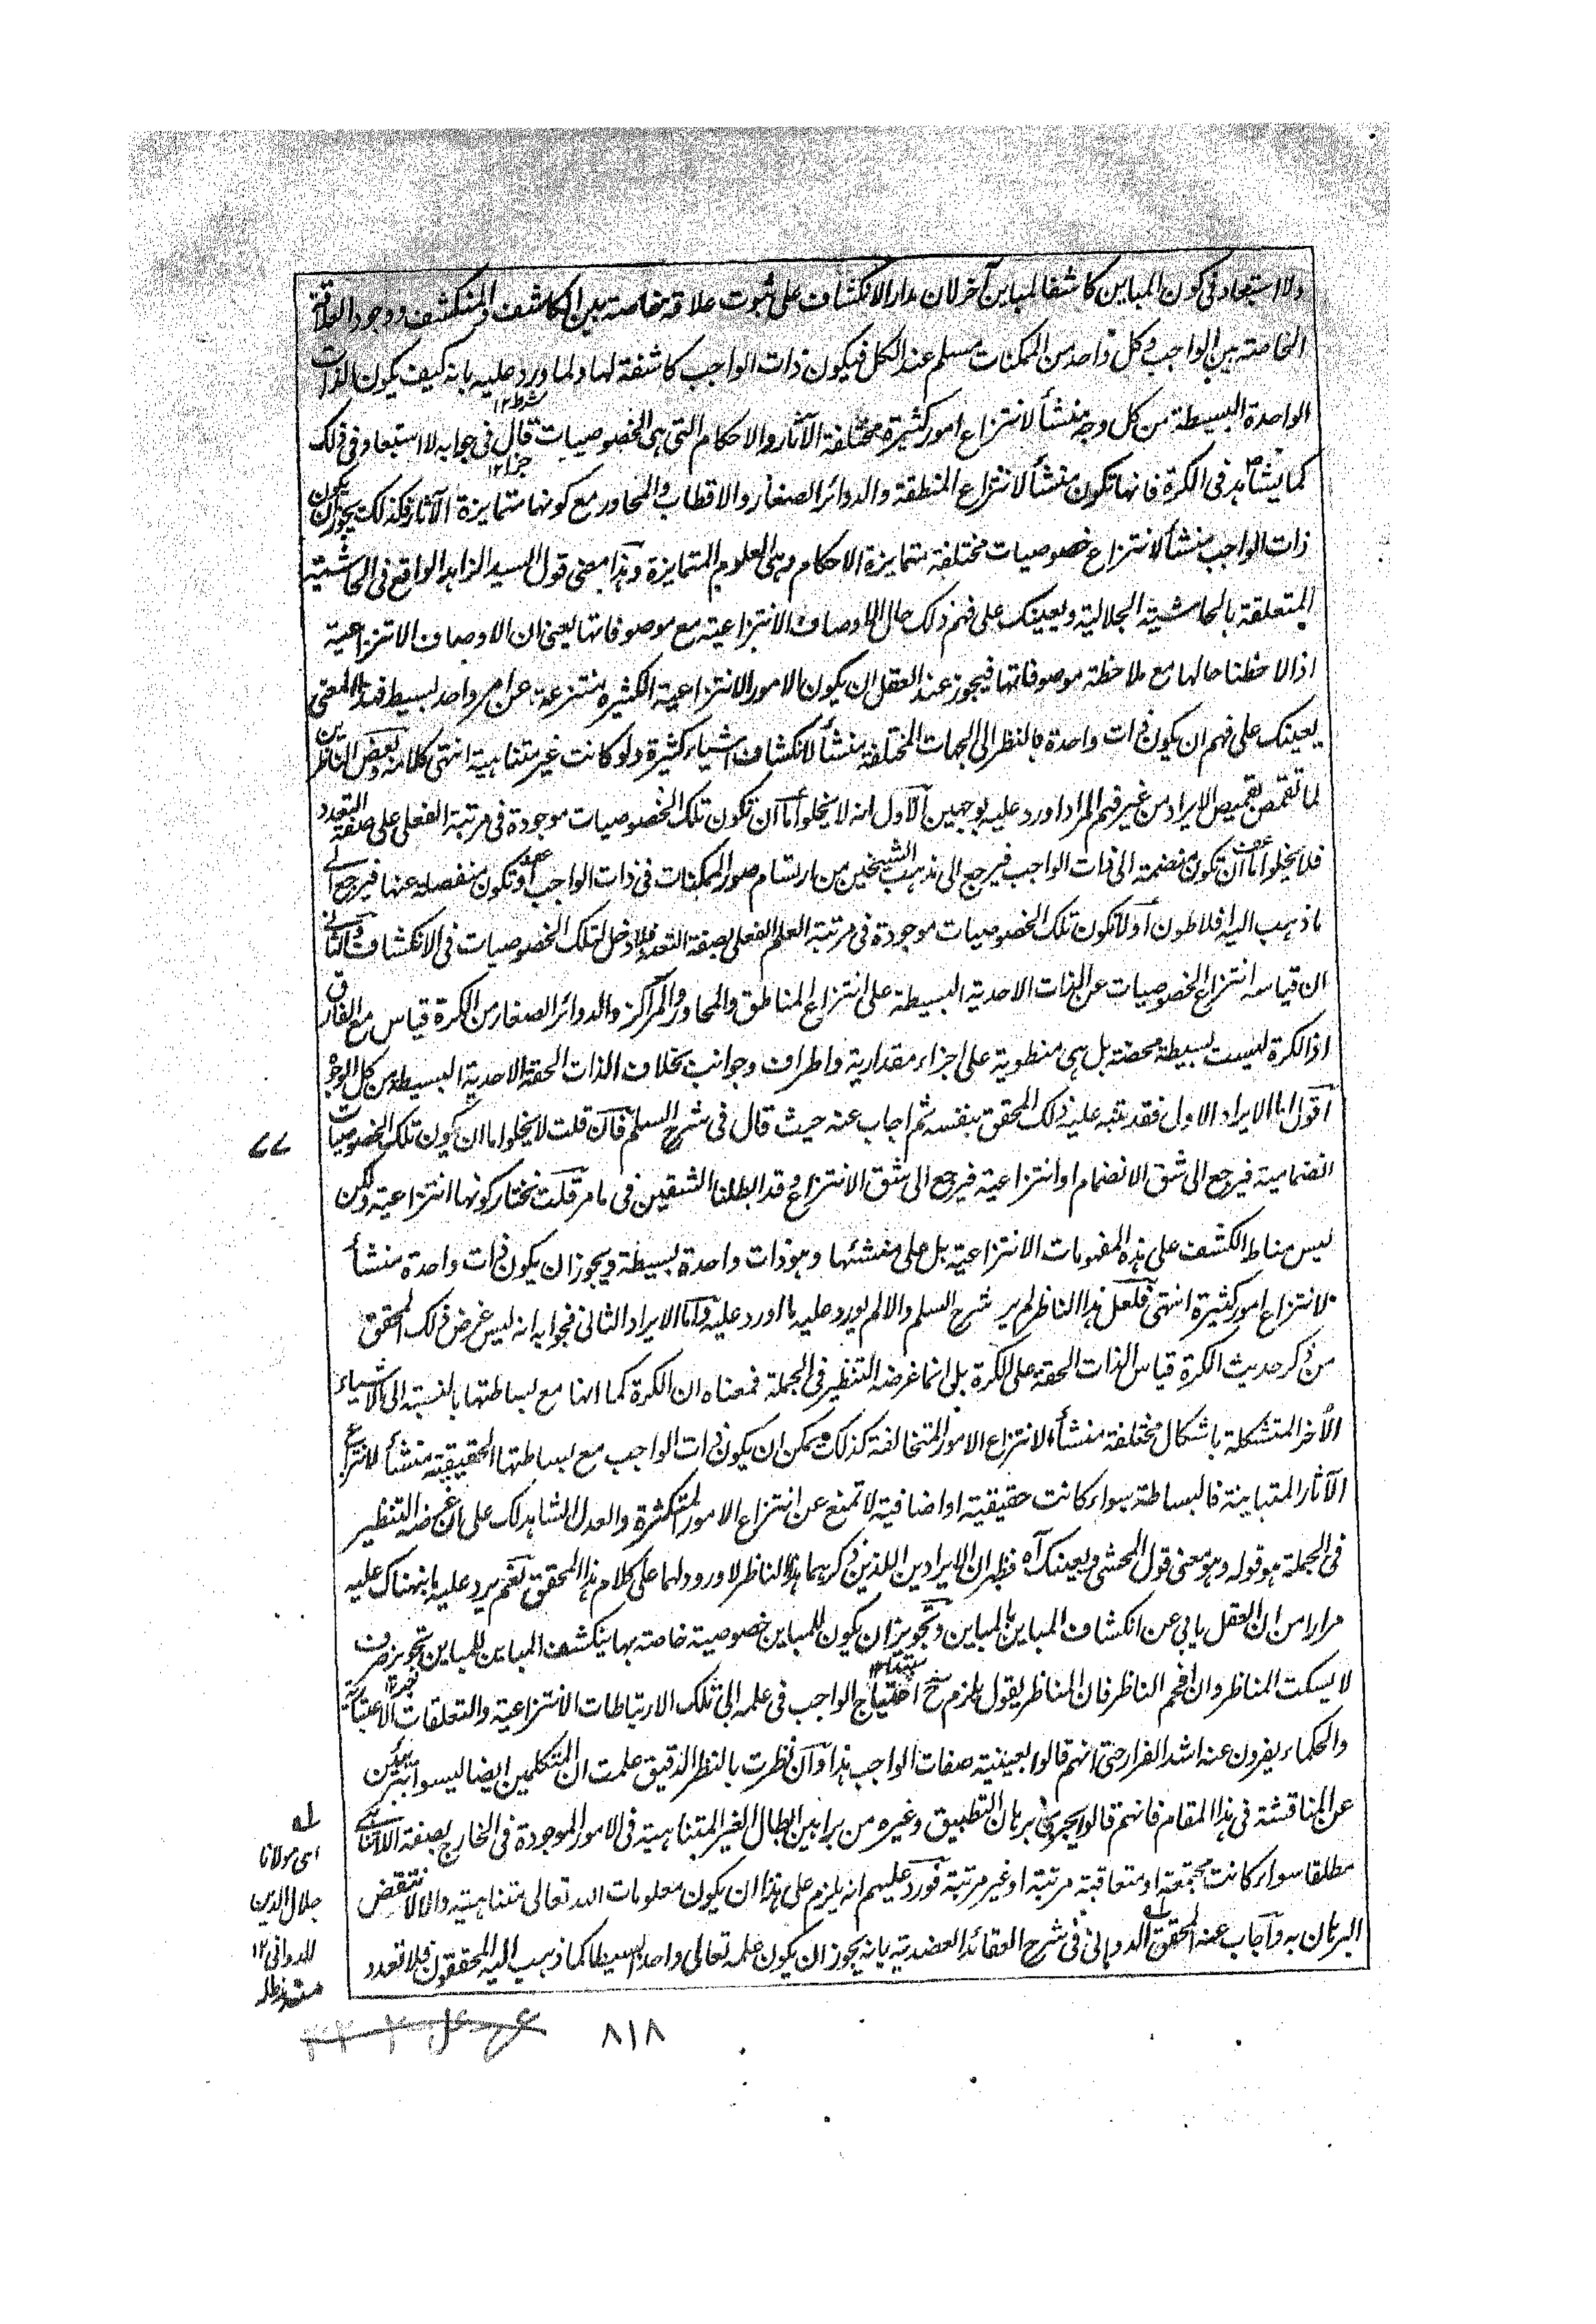 ولا استبعاد فی کون المباین کاشفا لمباین آخر لان مدار الانکشاف علی ثبوت علاقة خاصة بین الکاشف والمنکشف ووجود العلاقة
الخاصة بین الواجب وکل واحد من الممکنات مسلم عند الکل فیکون ذات الواجب کاشفة لها ولما ورد علیه بانه کیف یکون الذات
الواحدة البسیطة من کل وجه منشأ لانتزاع امور کثیرة مختلفة الآثار والاحکام التی هی الخصوصیات قال فی جوابه لا استبعاد فی ذلک
کما یشاهد فی الکرة فانها تکون منشأ لانتزاع المنطقة والدوائر الصغار والاقطاب والمحاور مع کونها متمایزة الآثار فکذلک یجوز ان یکون
ذات الواجب منشأ لانتزاع خصوصیات مختلفة متمایزة الاحکام وهی العلوم المتمایزة وهذا معنی قول السید الزاهد الواقع فی الحاشیة
المتعلقة بالحاشیة الجلالیة ویعینک علی فهم ذلک حال الاوصاف الانتزاعیة مع موصوفاتها یعنی ان الاوصاف الانتزاعیة
اذا لاحظنا حالها مع ملاحظة موصوفاتها فیجوز عند العقل ان یکون الامور الانتزاعیة الکثیرة منتزعة عن امر واحد بسیط فهذا المعنی
یعینک علی فهم ان یکون ذات واحدة بالنظر الی الجهات المختلفة منشأ لانکشاف اشیاء کثیرة ولو کانت غیر متناهیة انتهی کلامه وبعض الناظرین
لما تقمص بقمیص الایراد من غیر فهم المراد اورد علیه بوجهین الاول انه لا یخلو اما ان تکون تلک الخصوصیات موجودة فی مرتبة الفعلی علی صفة التعدد
فلا یخلو اما ان تکون منضمة الی ذات الواجب فیرجع الی مذهب الشیخین من ارتسام صور الممکنات فی ذات الواجب او تکون منفصلة عنها فیرجع الی
ما ذهب الیه افلاطون او لا تکون تلک الخصوصیات موجودة فی مرتبة العلم الفعلی بصفة التعدد فلا دخل لتلک الخصوصیات فی الانکشاف والثانی
ان قیاسه انتزاع الخصوصیات عن الذات الاحدیة البسیطة علی انتزاع المناطق والمحاور والمراکز والدوائر الصغار من الکرة قیاس مع الفارق
اذ الکرة لیست بسیطة محضة بل هی منطویة علی اجزاء مقداریة واطراف وجوانب بخلاف الذات الحقة الاحدیة البسیطة من کل الوجوه
اقول اما الایراد الاول فقد تنبه علیه ذلک المحقق بنفسه ثم اجاب عنه حیث قال فی شرح السلم فان قلت لا یخلو اما ان یکون تلک الخصوصیات
انضمامیة فیرجع الی شق الانضمام او انتزاعیة فیرجع الی شق الانتزاع وقد ابطلنا الشقین فی ما مر قلت نختار کونها انتزاعیة ولکن
لیس مناط الکشف علی هذه المفهومات الانتزاعیة بل علی منشئها وهو ذات واحدة بسیطة ویجوز ان یکون ذات واحدة منشأ
لانتزاع امور کثیرة انتهی فلعل هذا الناظر لم یر شرح السلم والا لم یورد علیه ما اورد علیه واما الایراد الثانی فجوابه انه لیس غرض ذلک المحقق
من ذکر حدیث الکرة قیاس الذات الحقة علی الکرة بل انما غرضه التنظیر فی الجملة فمعناه ان الکرة کما انها مع بساطتها بالنسبة الی الاشیاء
الأخر المتشکلة باشکال مختلفة منشأ لانتزاع الامور المتخالفة کذلک یمکن ان یکون ذات الواجب مع بساطتها الحقیقیة منشأ لانتزاع
الآثار المتباینة فالبساطة سواء کانت حقیقیة او اضافیة لا تمنع عن انتزاع الامور المتکثرة والعدل الشاهد لک علی ان غرضه التنظیر
فی الجملة هو قوله وهو معنی قول المحشی ویعینک آه فظهر ان الایرادین اللذین ذکرهما هذا الناظر لا ورود لهما علی کلام هذا المحقق نعم یرد علیه ما نبهناک علیه
مرارا من ان العقل یابی عن انکشاف المباین بالمباین وتجویز ان یکون للمباین خصوصیة خاصة بها ینکشف المباین للمباین تجویز صرف
لا یسکت المناظر وان افحم الناظر فان المناظر یقول یلزم ح احتیاج الواجب فی علمه الی تلک الارتباطات الانتزاعیة والتعلقات الاعتباریة
والحکماء یفرون عنه اشد الفرار حتی انهم قالوا بعینیة صفات الواجب هذا وان نظرت بالنظر الدقیق علمت ان المتکلمین ایضا لیسوا بمتبرئین
عن المناقشة فی هذا المقام فانهم قالوا بجریان برهان التطبیق وغیره من براهین ابطال الغیر المتناهیة فی الامور الموجودة فی الخارج بصفة اللاتناهی
مطلقا سواء کانت مجتمعة او متعاقبة مرتبة او غیر مرتبة فورد علیهم انه یلزم علی هذا ان یکون معلومات الله تعالی متناهیة والا لانتقض
البرهان به واجاب عنه المحقق الدوانی فی شرح العقائد العضدیة بانه یجوز ان یکون علمه تعالی واحدا بسیطا کما ذهب الیه المحققون فلا تعدد
شرط ١٢
جزا ١٢
٧٧
له
ای مولانا
جلال الدین
الدوانی ١٢
منه مدظله
٨١٨